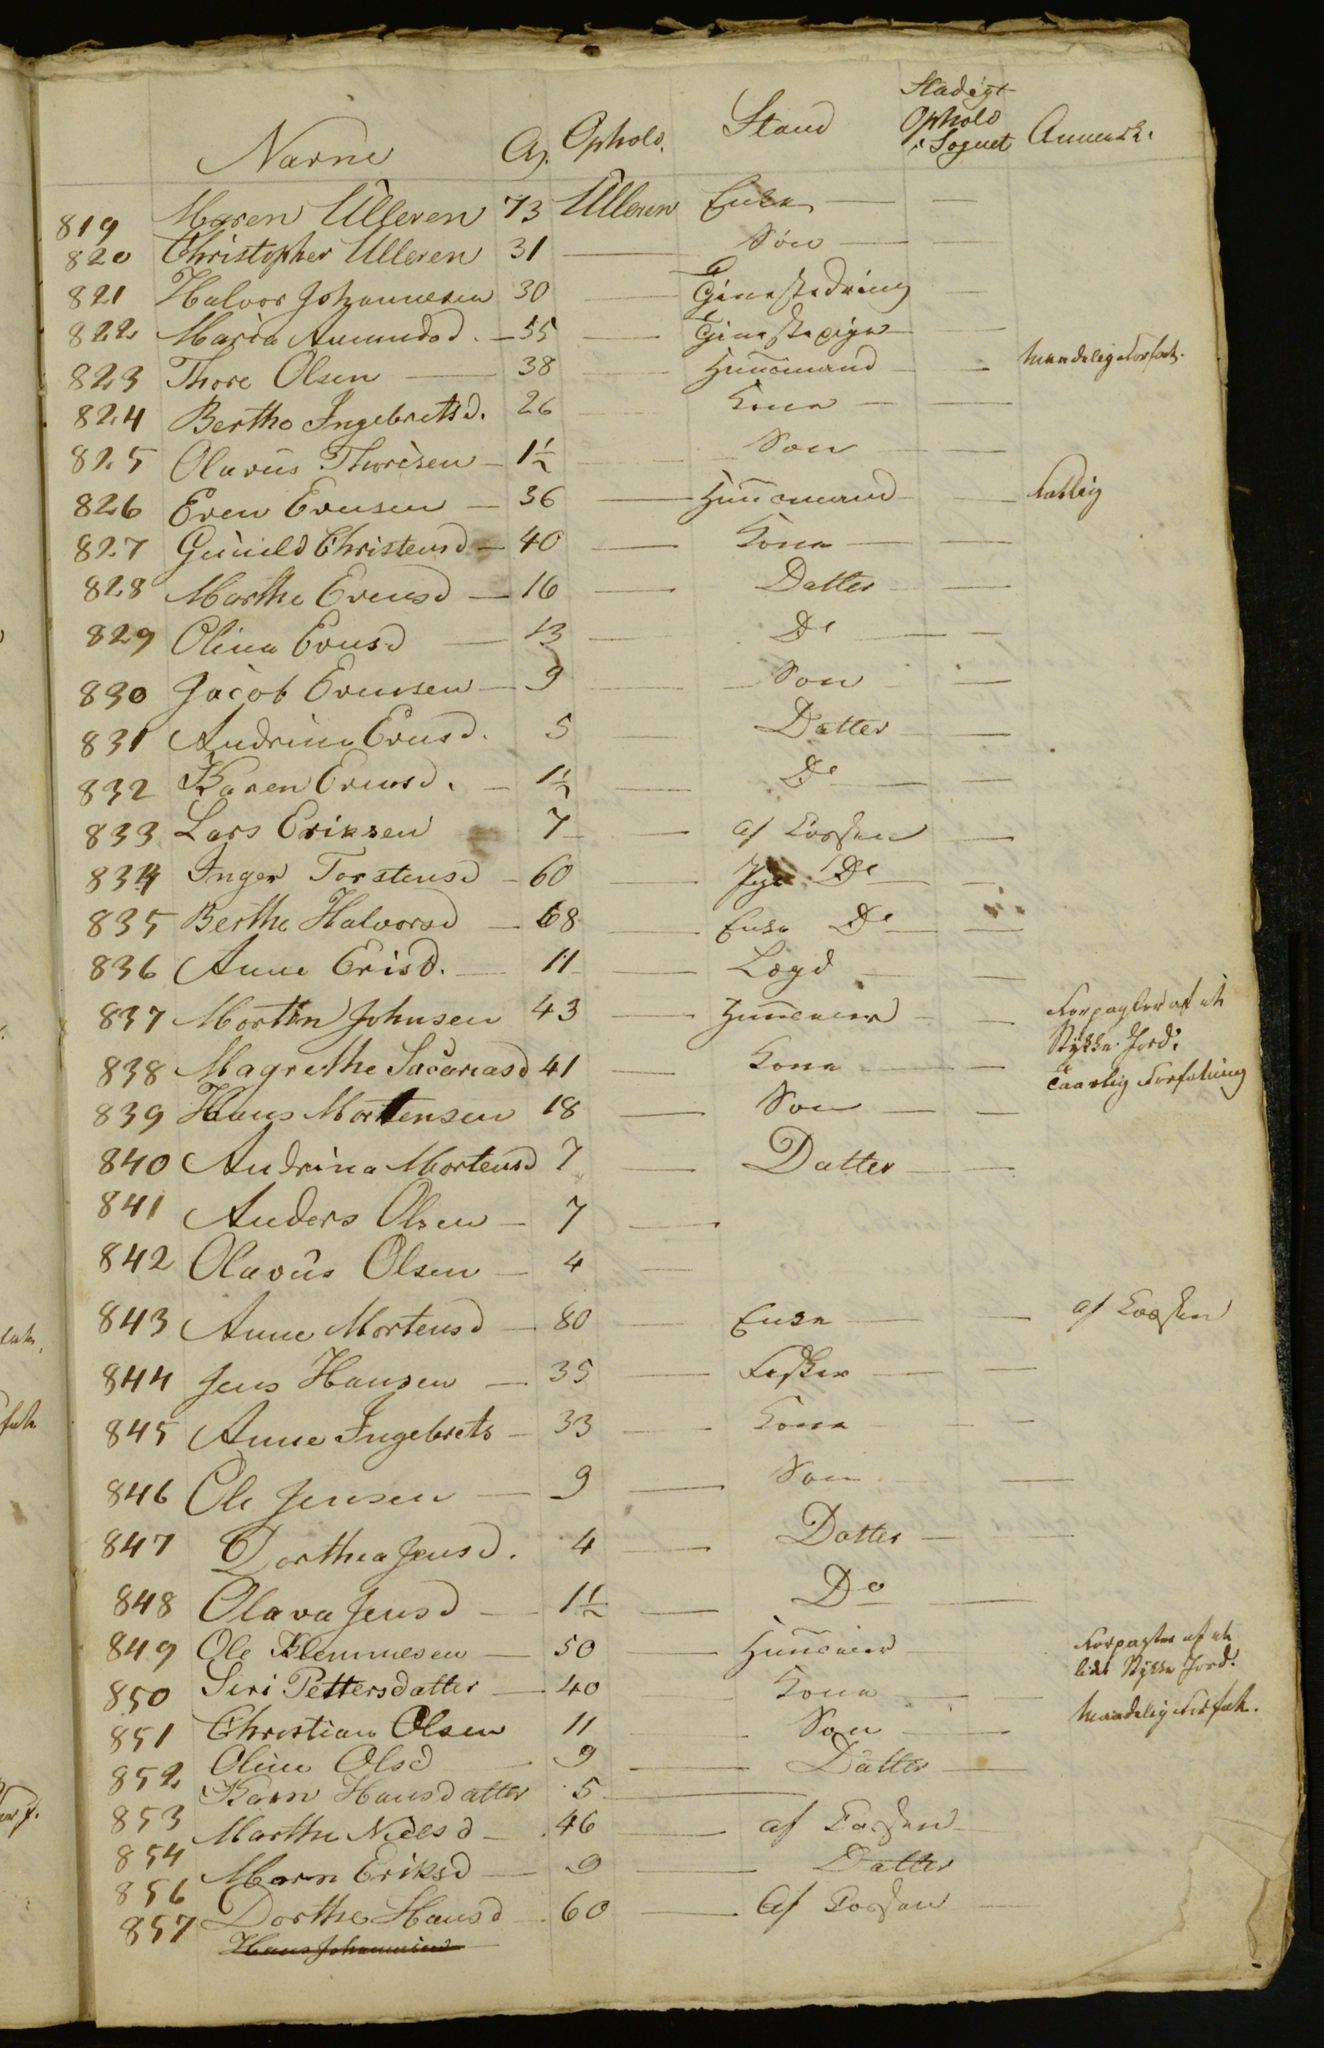 Navne Al. Ophold. Stand Stadigt Ophold i Sognet Anmerk.
819 Maren Ulleren 73 Ulleren Enke — —
820 Christopher Ulleren 31 — Søn — —
821 Halvor Johannesen 30 — Tienestedreng —
822 Maria Amundsd. — 55 — Tienestepige —
823 Thore Olsen — 38 — Huusmand — — maadelig Forfat.
824 Berthe Ingebretsd. 26 — Kone — —
825 Olavus Thoresen — 1½ — Søn — —
826 Even Evensen — 36 — Huusmand — — Fattig
827 Gunild Christensd — 40 — Kone — —
828 Marthe Evensd — 16 — Datter — —
829 Olina Evensd — 13 — Do — —
830 Jacob Evensen — 9 — Søn — —
831 Andrine Evensd. 5 — Datter —
832 Karen Evensd. — 1½ — Do — —
833 Lars Eriksen 7 — af Kassen —
834 Inger Torstensd — 60 — Pige Do — —
835 Berthe Halvorsd — 68 — Enke Do — —
836 Anne Erisd. — 11 — Lægd — —
837 Morten Johnsen 43 — Huuseier — — Forpagter af et
Stykke Jord.
838 Magrethe Sacariasd 41 — Kone — — taarlig Forfatning
839 Hans Mortensen 18 — Søn — —
840 Andrina Mortensd 7 — Datter — —
841 Anders Olsen — 7 —
842 Olavus Olsen — 4 —
843 Anne Mortensd — 80 Enke — — af Kassen
844 Jens Hansen — 35 — Fisker — —
845 Anne Ingebrets — 33 — Kone — —
846 Ole Jensen — 9 — Søn —
847 Dorthea Jensd. 4 — Datter —
848 Olava Jensd — 1½ — Do —
849 Ole Klemmesen — 50 — Huuseier Forpagter af et
lidet Stykke Jord.
850 Siri Pettersdatter — 40 Kone — — maadelig Forfat.
851 Christian Olsen 11 — Søn — —
852 Oline Olsd — 9 — Datter —
853 Karn Hansdatter 5 —
854 Marthe Nielsd — 46 — af Kassen —
856 Marn Eriksd — 9 — Datter
857 Dorthe Hansd — 60 — Af Kassen —
Hans Johannesen